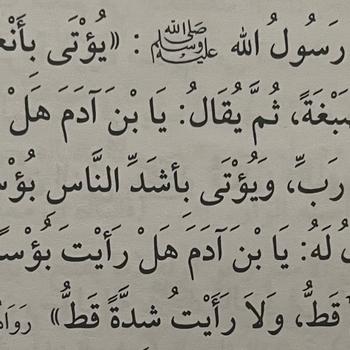 رَسُولُ الله ﷺ : «يُؤْتَى بِأَنْعَ
صَبْغَةً، ثُمَّ يُقَالُ: يَا بْنَ آدَمَ هَلْ
رَبِّ، وَيُؤْتَى بِأَشَدِّ النَّاسِ بُؤْسـ
لَهُ: يَا بْنَ آدَمَ هَلْ رَأَيْتَ بُؤْسـ
قَطُّ، وَلاَ رَأَيْتُ شدَّةً قَطُّ» رَوَاهُ